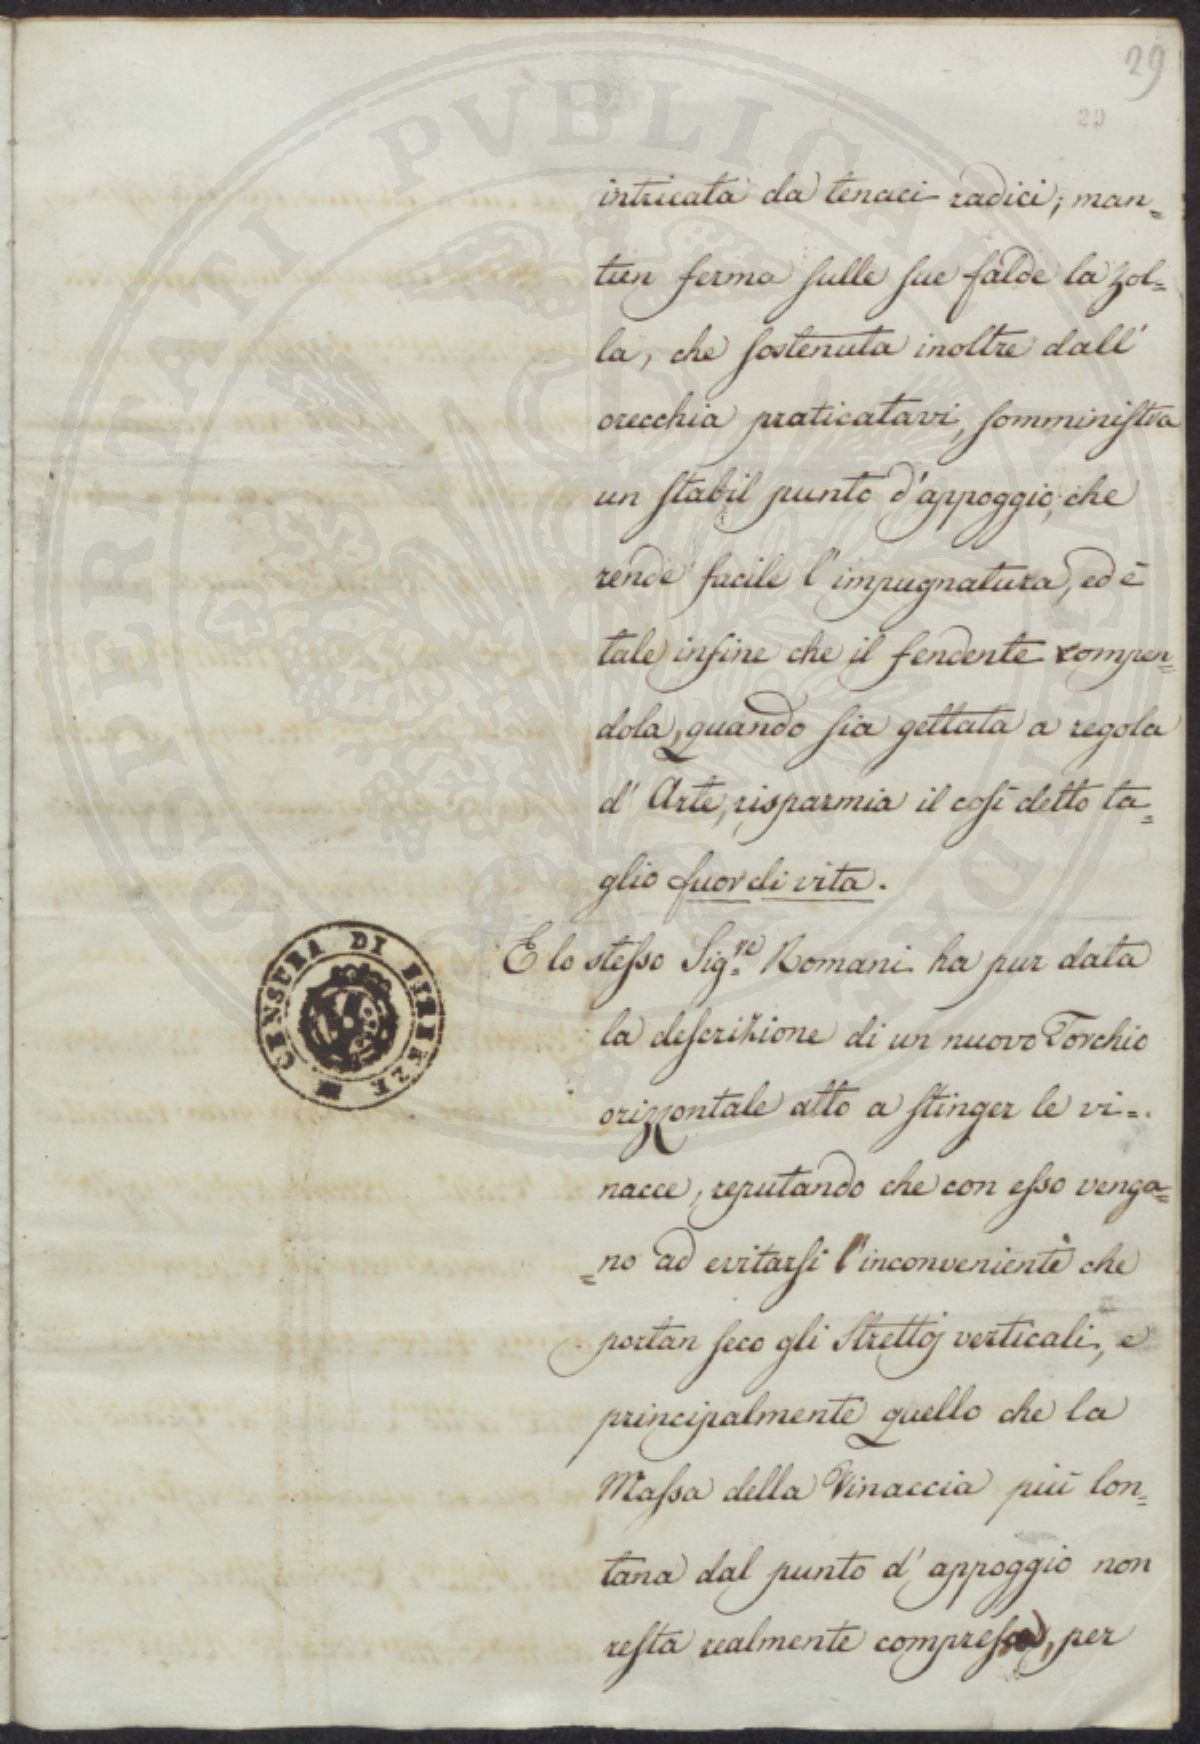 29
29
intricata da tenaci radici; man=
tien ferma sulle sue falde la zol=
la, che sostenuta inoltre dall'
orecchia praticatavi, somministra
un stabil punto d'appoggio, che
rende facile l'impugnatura, ed è
tale infine che il fendente rompen=
dola, quando sia gettata a regola
d'Arte, risparmia il così detto ta=
glio fuor di vita.
E lo stesso Sig.re Romani ha pur data
la descrizione di un nuovo Torchio
orizzontale atto a stinger le vi=
nacce, reputando che con esso venga=
=no ad evitarsi l'inconveniente che
portan seco gli Strettoj verticali, e
principalmente quello che la
Massa della Vinaccia più lon=
tana dal punto d'appoggio non
resta realmente compressa, per
CENSURA DI FIRENZE
PROSPERITATI PVBLICAE AVGENDAE